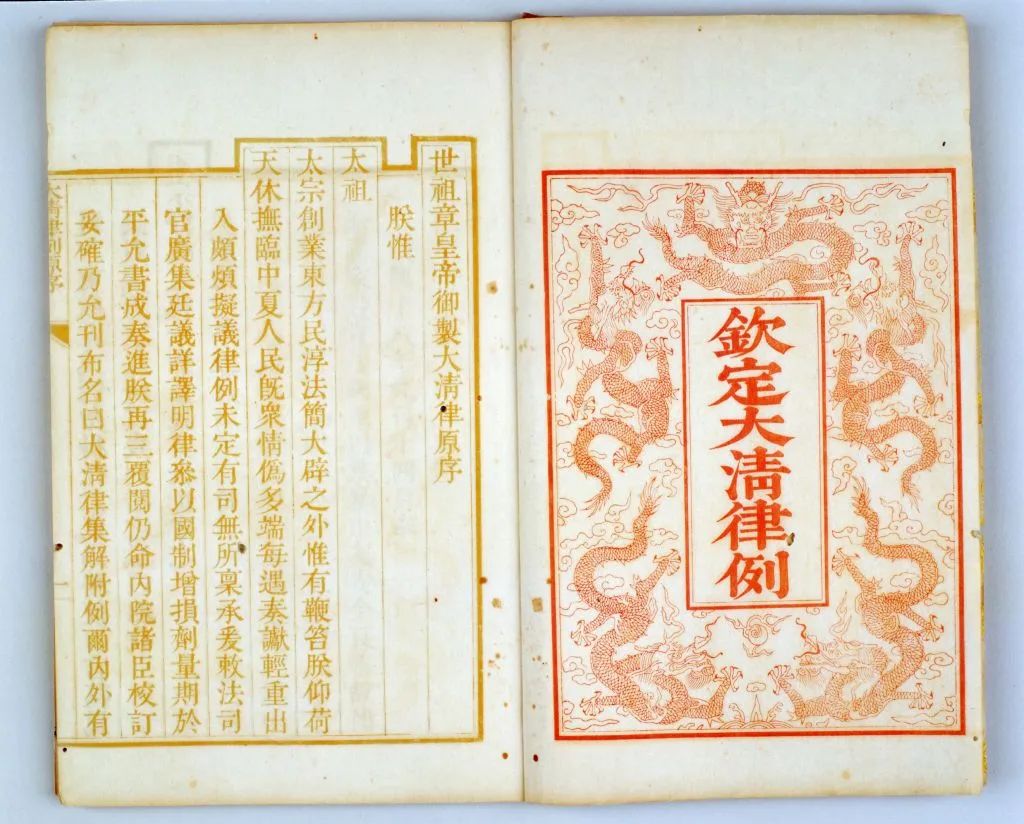 欽定大清律例
世祖章皇帝御製大清律原序
朕惟
太祖
太宗創業東方民淳法簡大辟之外惟有鞭笞朕仰荷
天休撫臨中夏人民旣衆情僞多端每遇奏讞輕重出
入頗煩擬議律例未定有司無所稟承爰敕法司
官廣集廷議詳譯明律叅以國制增損劑量期於
平允書成奏進朕再三覆閱仍命內院諸臣校訂
妥確乃允刊布名曰大淸律集解附例爾內外有
大淸律例 序